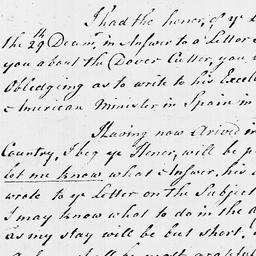 I had the honer, of ye
the 29th Decmr, in Answer to a Letter
you about the Dover Cutter, you
Obledging as to write to his Excel
American Minister in Spain in
Having now Arived in
Country, I beg ye Honer, will be p
let me know what Answer, his
wrote to ye Letter on the Subject
I may know what to do in the a
as my stay will be but short.